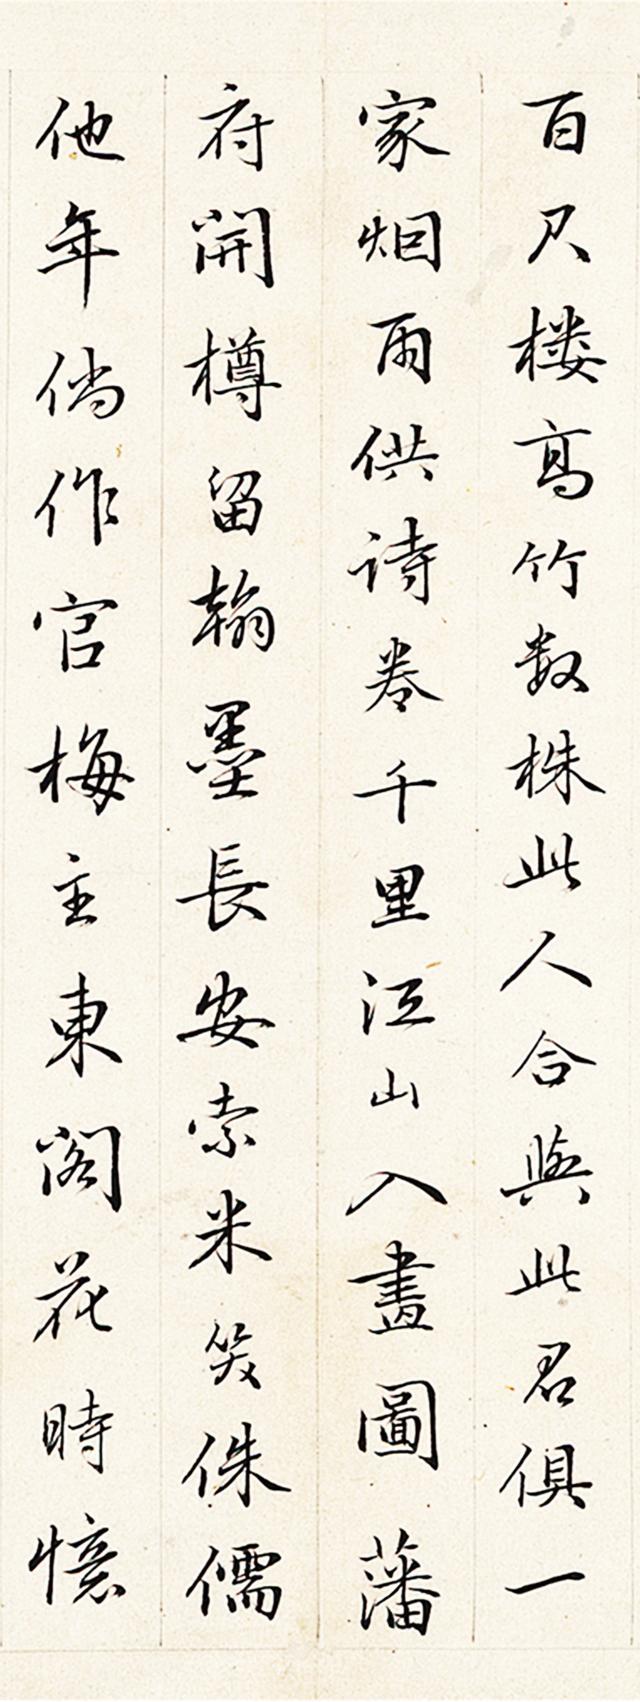 百尺楼高竹数株此人合與此君俱一
家烟雨供诗卷千里江山入畫圖藩
府開樽留翰墨長安索米笑侏儒
他年倘作官梅主東閣花時憶